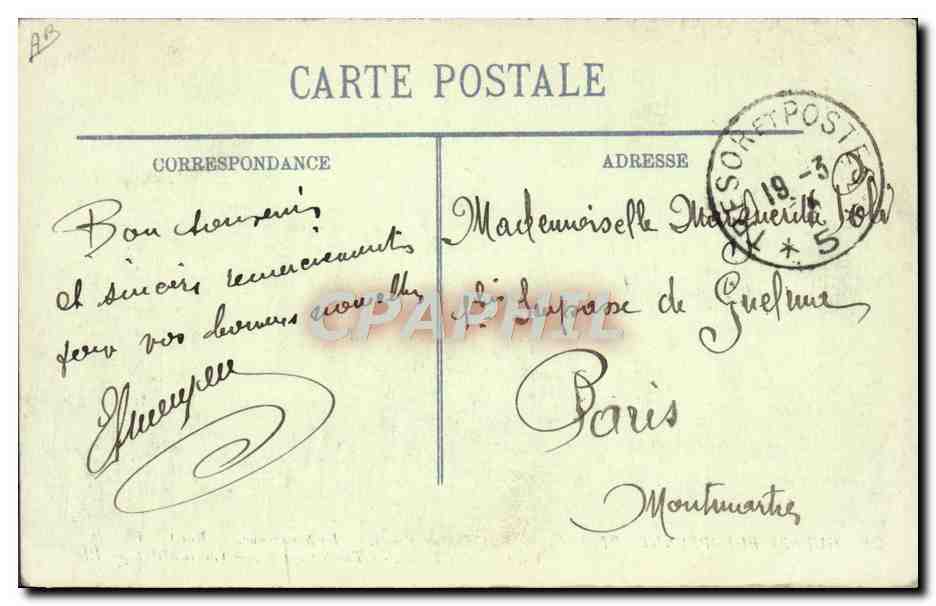 AB
CARTE POSTALE
CORRESPONDANCE
Bon souvenir
et sincères remerciements
pour vos bonnes nouvelles
ADRESSE
Mademoiselle Marguerite
1bis Impasse de Guelma
Paris
Montmartre
TRESOR ET POSTES
19 -3
* 5
CPAPHIL